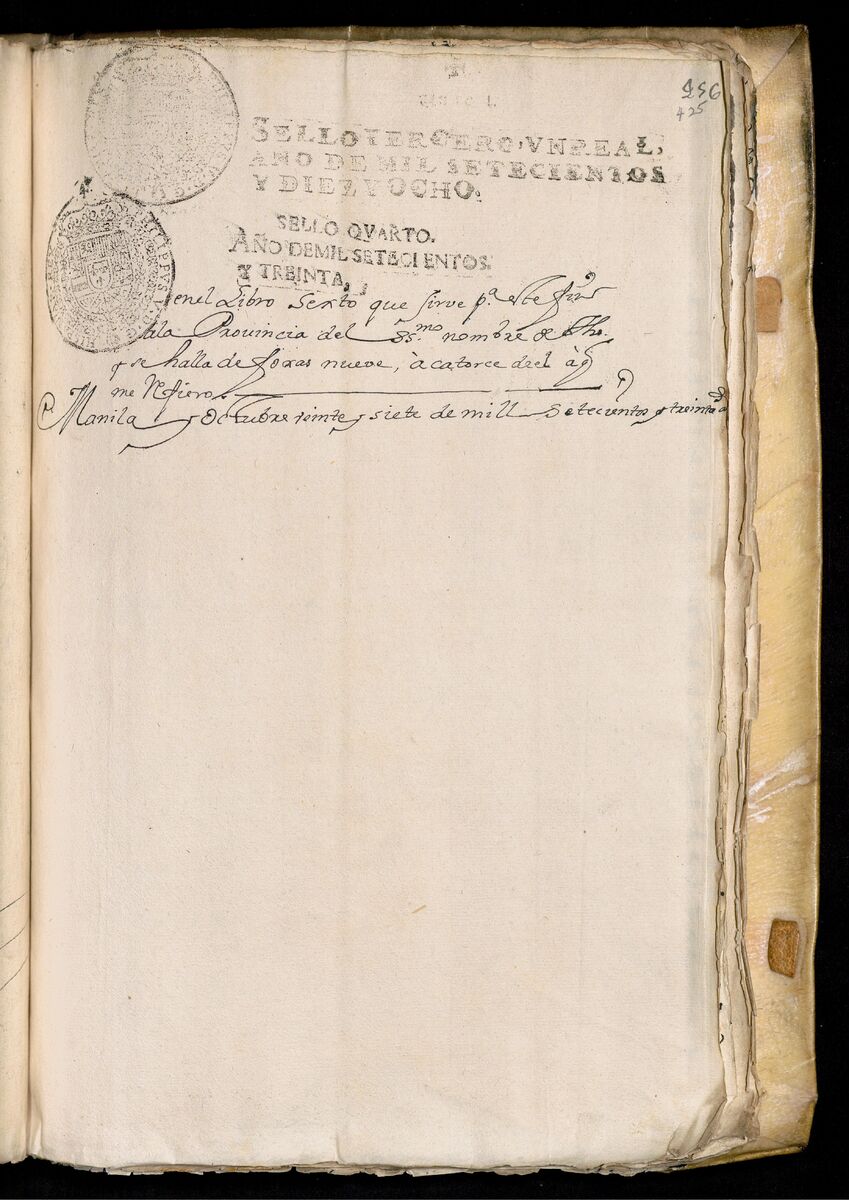 256
425
SELLO TERCERO, VN REAL,
AÑO DE MIL SETECIENTOS
Y DIEZ Y OCHO.
SELLO QVARTO.
AÑO DE MIL SETECIENTOS
Y TREINTA,
enel Libro Sexto que sirve pa. este
Provincia del ss.mo nombre de Jhs.
y se halla de foxas nueve, à catorce deel
me Refiero.
Manila y Octubre veinte y siete de mill setecientos y treinta